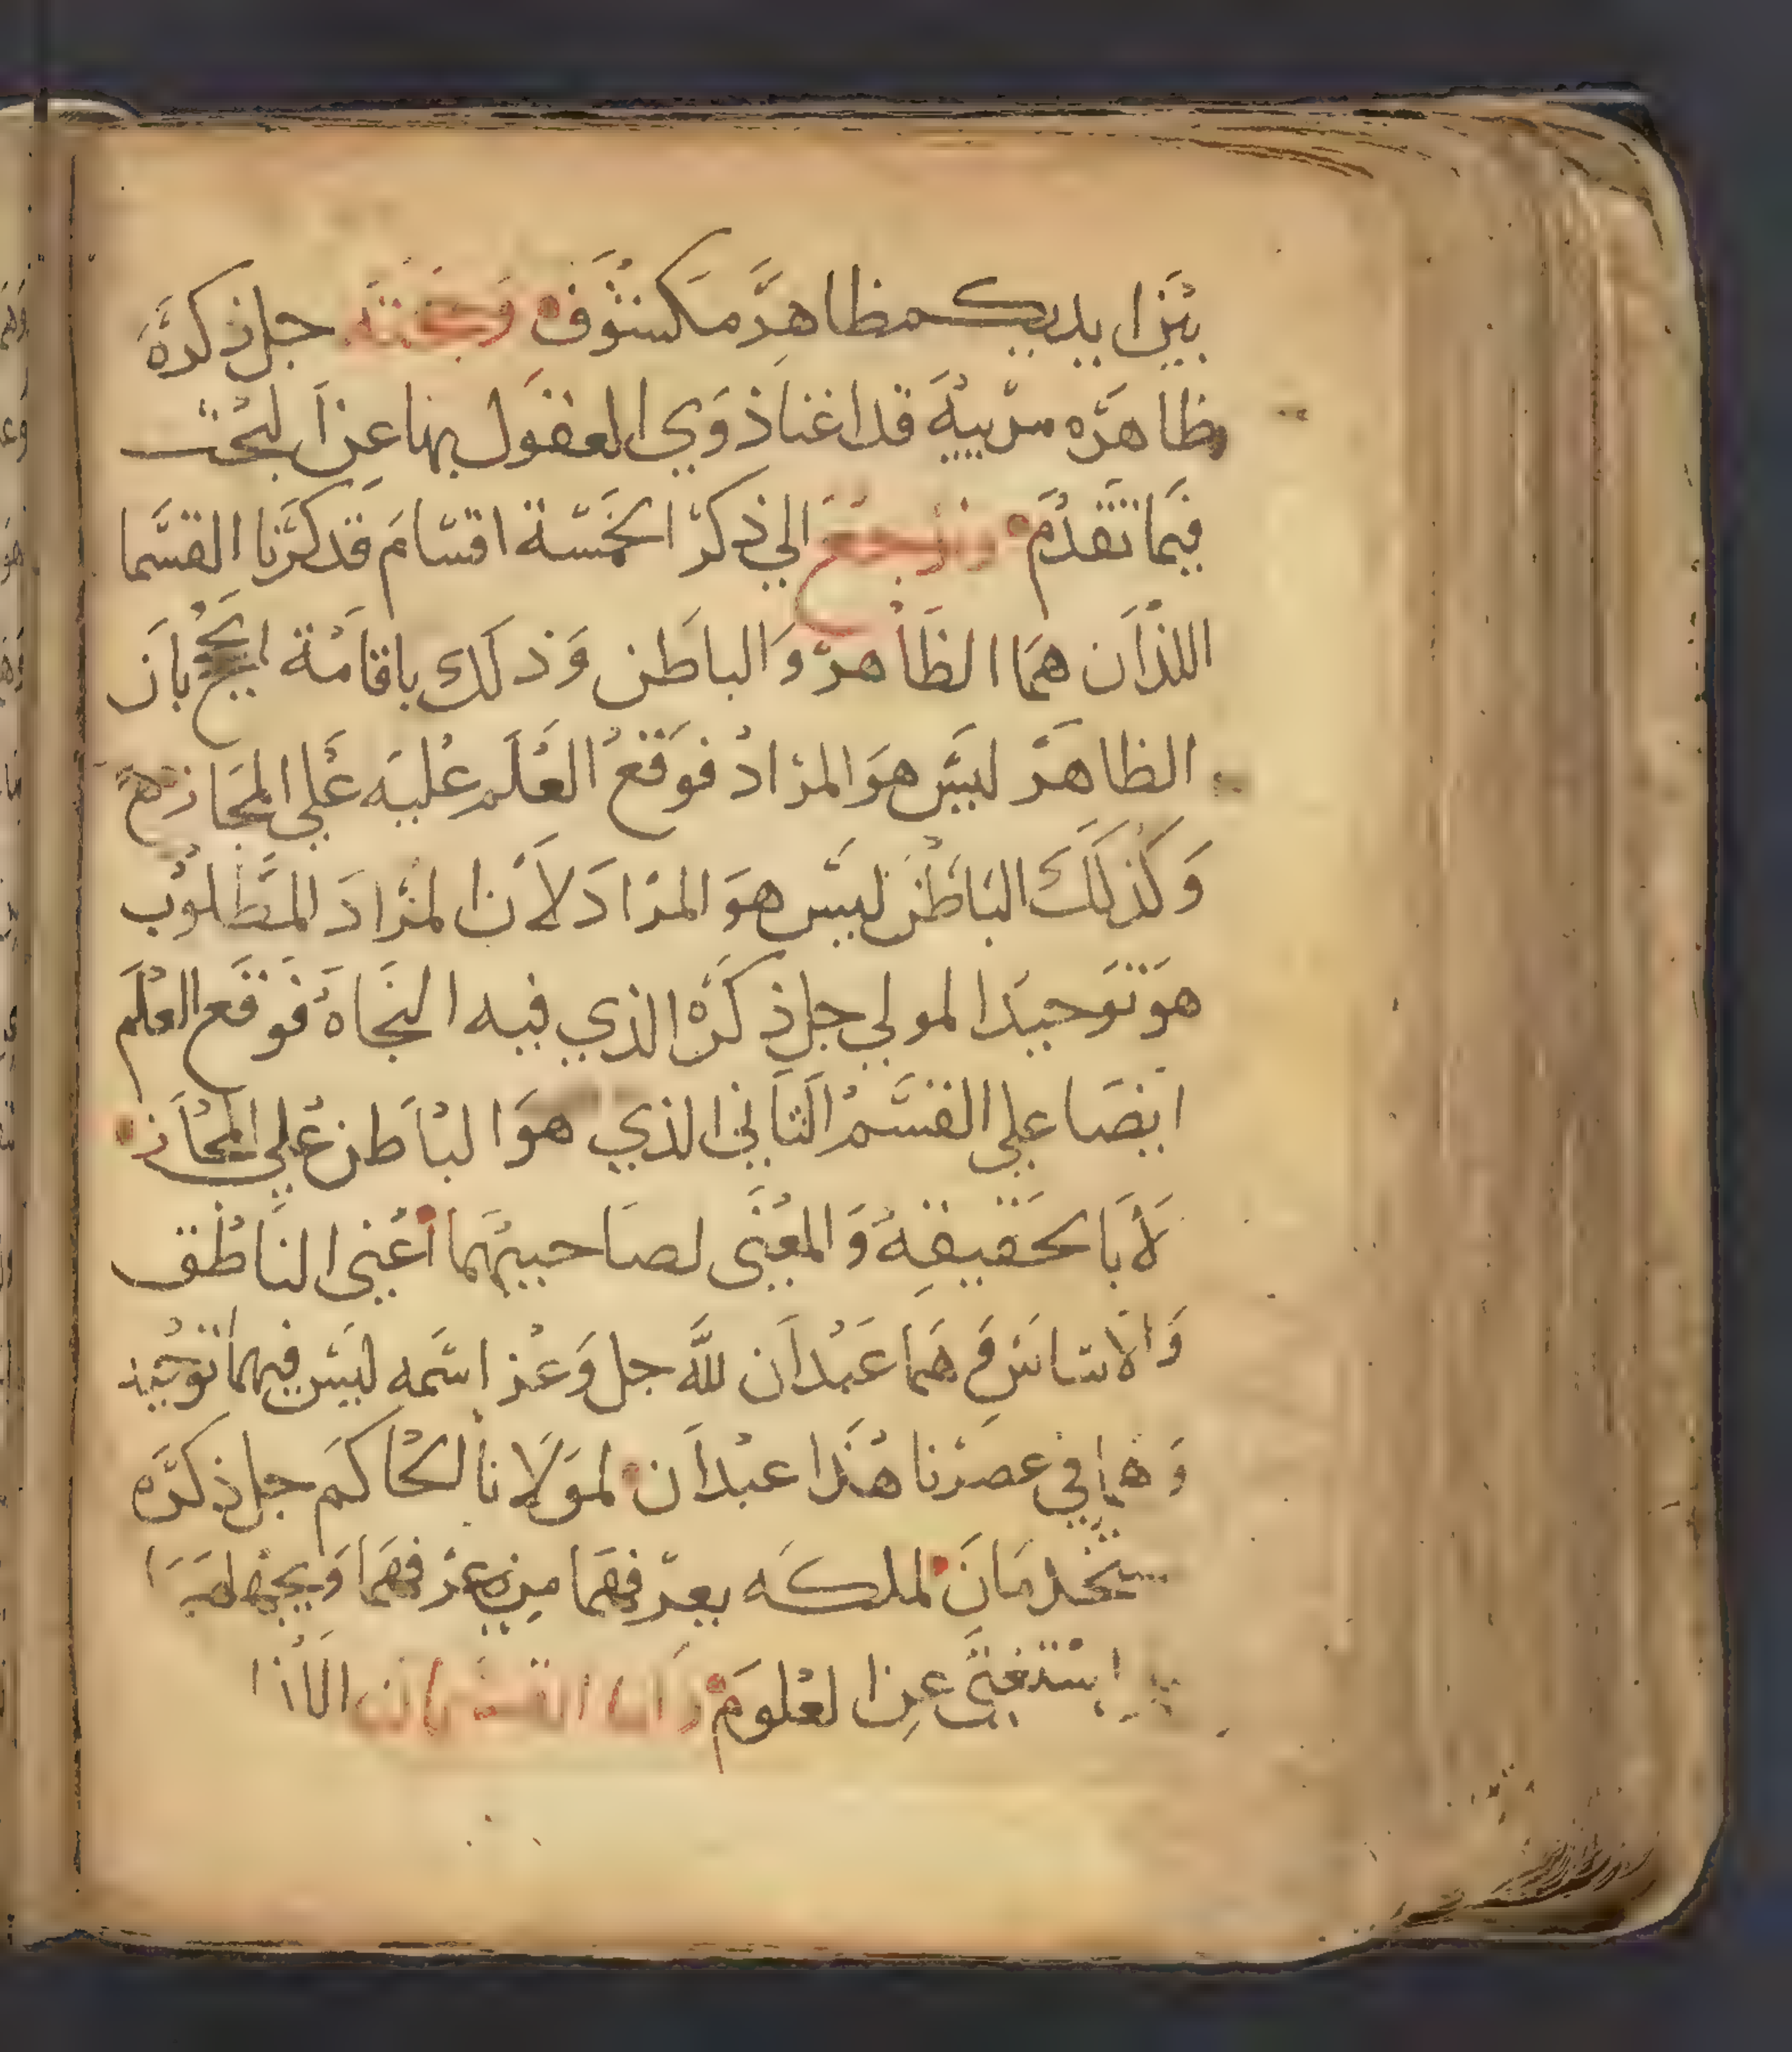 بين ايديكم ظاهر مكشوف وحجته جل ذكره
ظاهره مريية قد اغنا ذوي العقول بها عن البحث
فيما تقدم ونرجع الي ذكر الخمسة اقسام قد ذكرنا القسما
اللذان هما الظاهر والباطن وذلك باقامة الحجج بان
الظاهر ليس هو المراد فوقع العلم عليه علي المجاز
وكذلك الباطن ليس هو المراد لان المراد المطلوب
هو توحيد المولي جل ذكره الذي فيه النجاه فوقع العلم
ايضا علي القسم الثاني الذي هو الباطن علي المجاز
لا بالحقيقة والمعنى لصاحبيهما اعني الناطق
والاساس وهما عبدان لله جل وعز اسمه ليس فيهما توحيد
وهما في عصرنا هذا عبدان لمولانا الحاكم جل ذكره
يخدمان لملكه يعرفهما من عرفهما ويجهلهما
استغنى عن العلوم وان القسمان اللذا